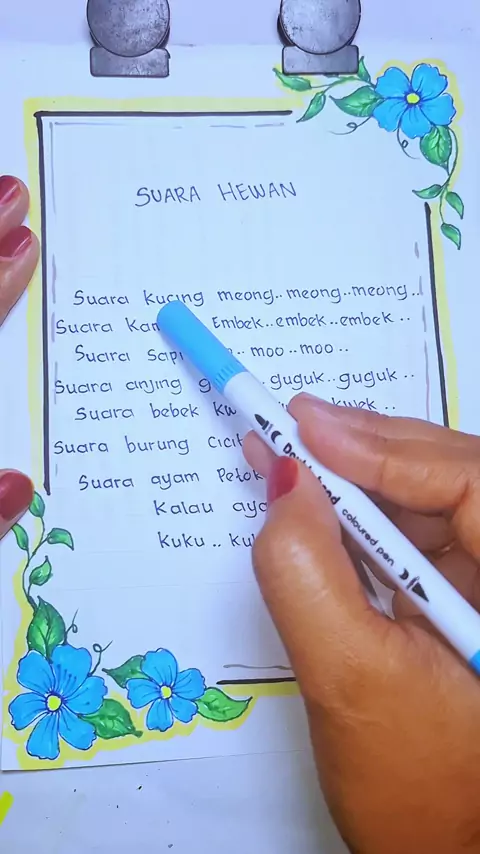 SUARA HEWAN
Suara kucing meong.. meong..meong..
Suara Embek..embek..embek ..
Suara sapi .. moo ..moo ..
Suara anjing guguk..guguk ..
Suara bebek kwek..
Suara burung
Suara ayam Petok
Kalau
Kuku ..
Double-end coloured pen